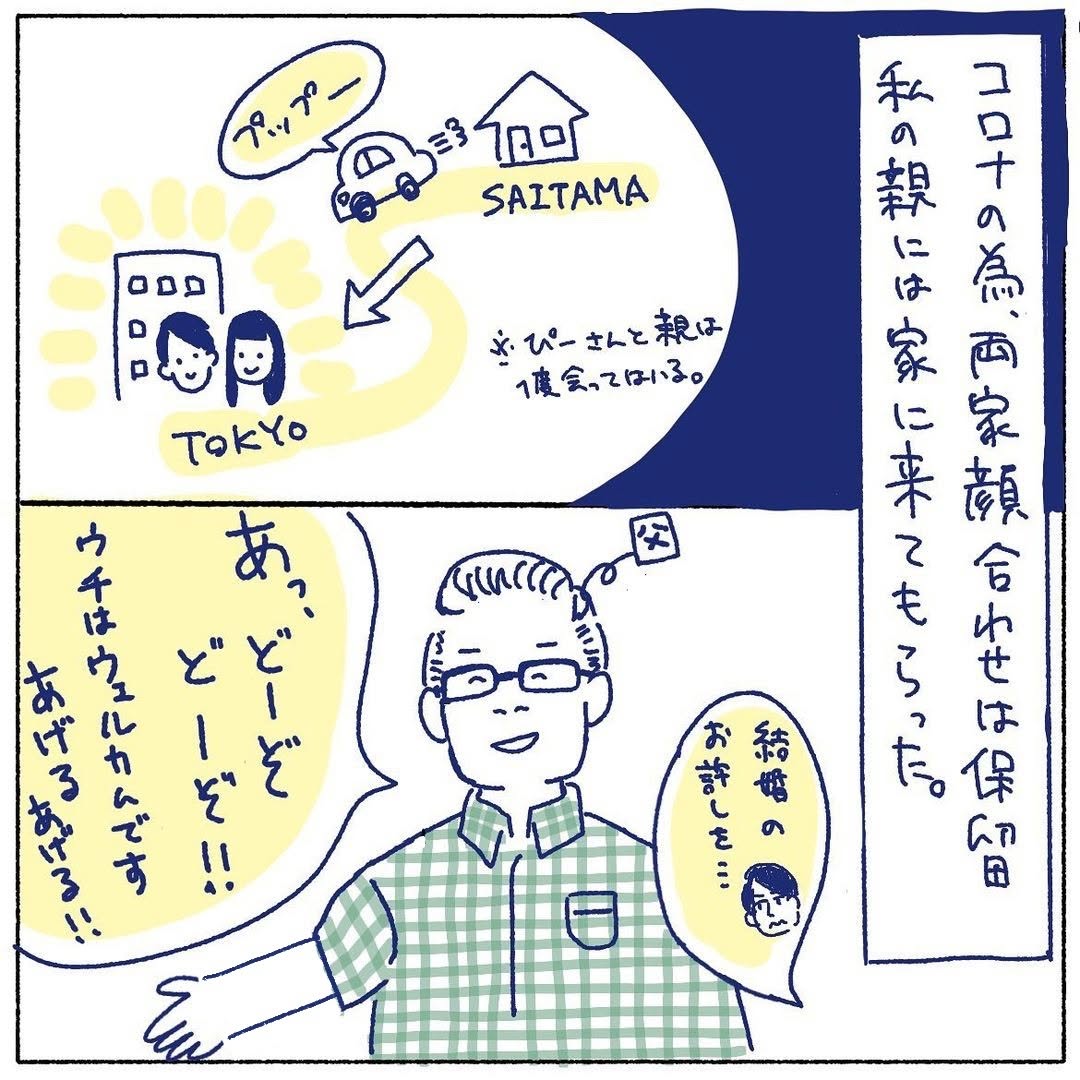 コロナの為、両家顔合わせは保留
私の親には家に来てもらった。
SAITAMA
プップー
TOKYO
※ぴーさんと親は
1度会ってはいる。
父
結婚の
お許しを…
あっ、どーぞ
どーぞ!!
ウチはウェルカムです
あげるあげる!!